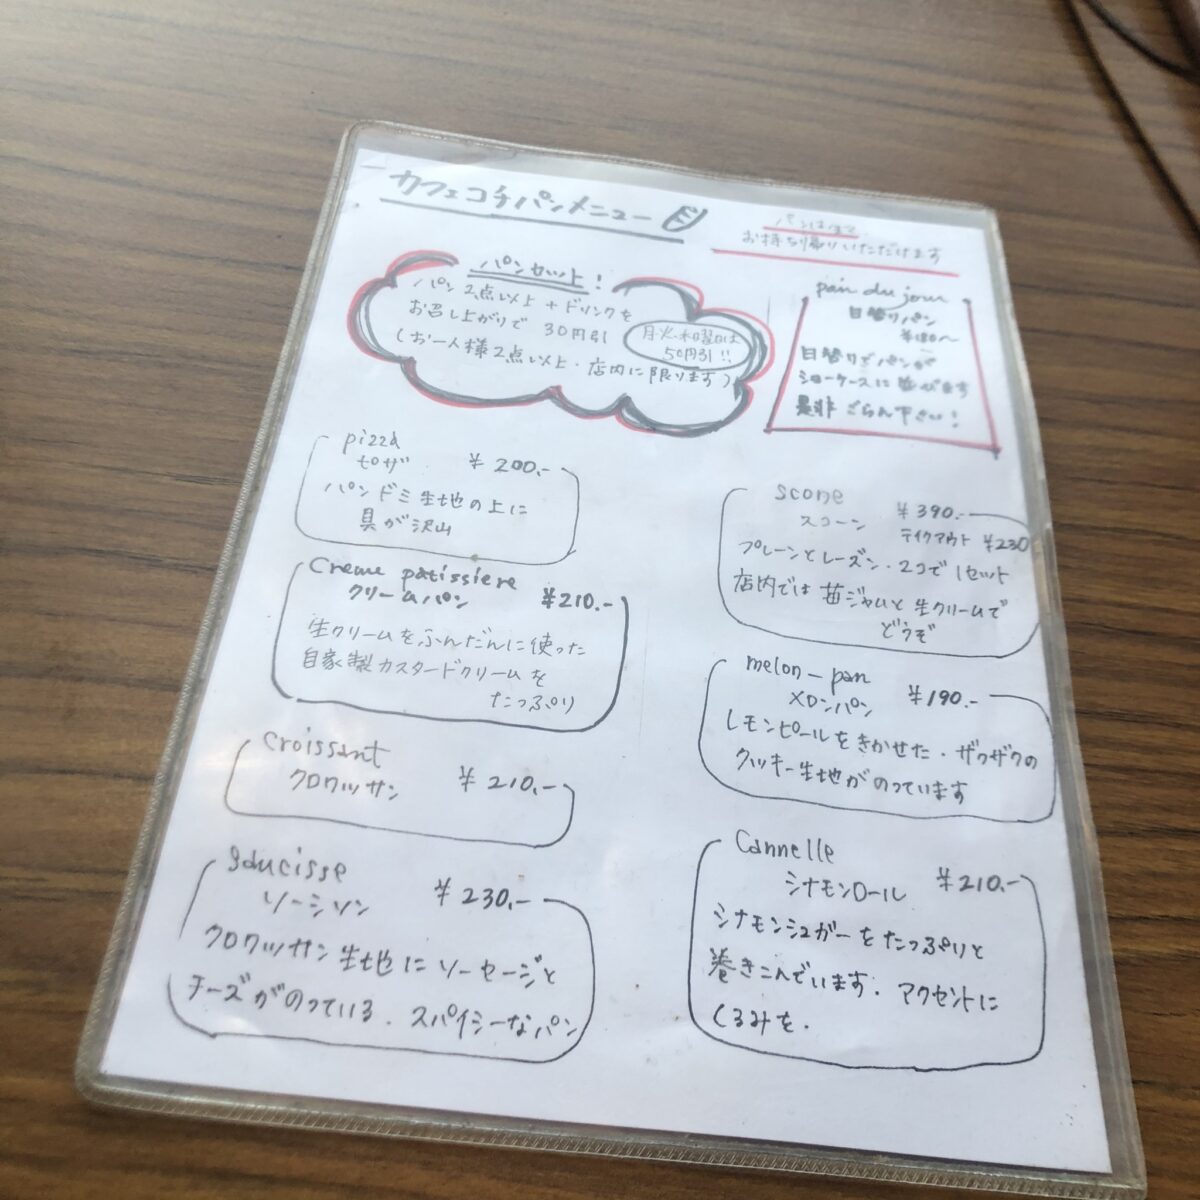 カフェコチパンメニュー
パンは全て
お持ち帰りいただけます
パンセット!
パン2点以上+ドリンクを
お召し上がりで 30円引
月・火・木曜日は
50円引!!
(お一人様2点以上・店内に限ります)
pain du jour
日替りパン
¥180〜
日替りでパンが
ショーケースに並びます
是非ごらん下さい!
pizza
ピザ ¥200.-
パンドミ生地の上に
具が沢山
Creme patissiere
クリームパン ¥210.-
生クリームをふんだんに使った
自家製カスタードクリームを
たっぷり
Croissant
クロワッサン ¥210.-
saucisse
ソーシソン ¥230.-
クロワッサン生地にソーセージと
チーズがのっている.スパイシーなパン
scone
スコーン ¥390.-
テイクアウト ¥230
プレーンとレーズン・2コで1セット
店内では苺ジャムと生クリームで
どうぞ
melon-pan
メロンパン ¥190.-
レモンピールをきかせた・ザクザクの
クッキー生地がのっています
Cannelle
シナモンロール ¥210.-
シナモンシュガーをたっぷりと
巻きこんでいます.アクセントに
くるみを.